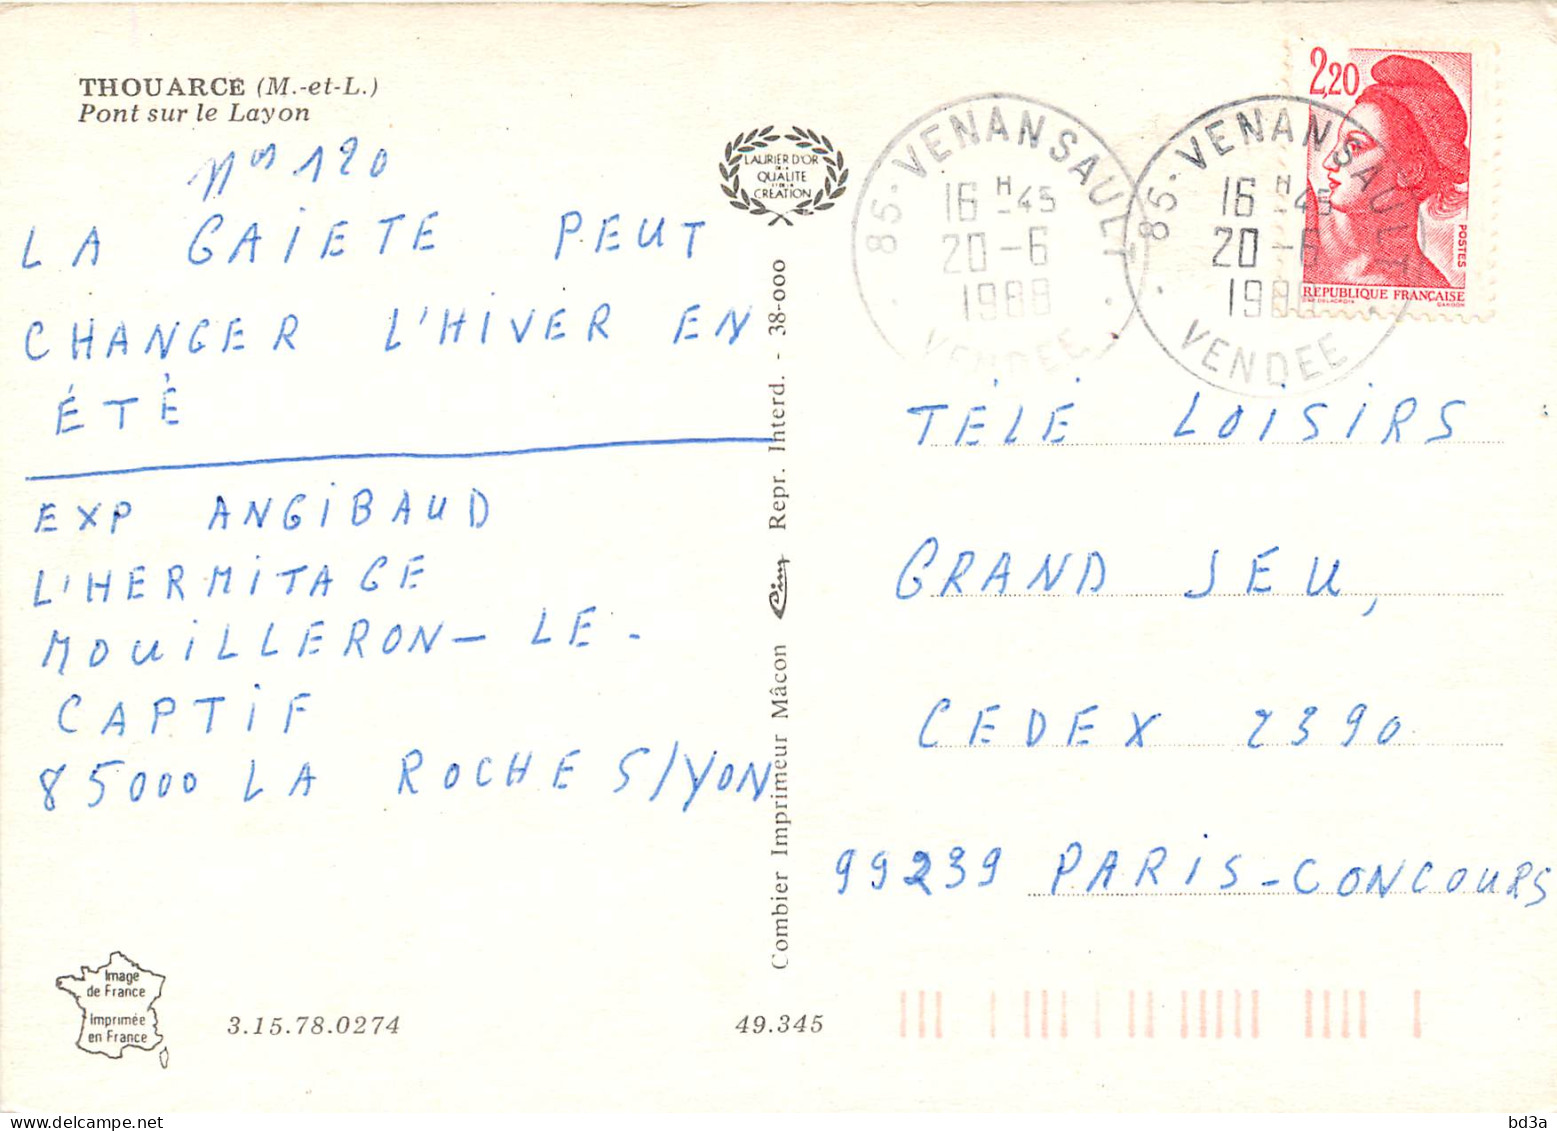 THOUARCÉ (M.-et-L.)
Pont sur le Layon
nos 120
LA GAIETE PEUT
CHANGER L'HIVER EN
ÉTÉ
EXP ANGIBAUD
L'HERMITAGE
MOUILLERON - LE -
CAPTIF
85000 LA ROCHE S/YON
Image
de France
Imprimée
en France
3.15.78.0274
49.345
LAURIER D'OR
DE LA
QUALITE
ET DE LA
CRÉATION
Combier Imprimeur Mâcon Cim Repr. Interd. - 38-000
85 · VENANSAULT
16 H -45
20 -6
1988
VENDEE
85 · VENANSAULT
16 H -45
20 -6
1988
VENDEE
2,20
POSTES
REPUBLIQUE FRANÇAISE
TÉLÉ LOISIRS
GRAND JEU,
CEDEX 2390
99239 PARIS - CONCOURS
bd3a